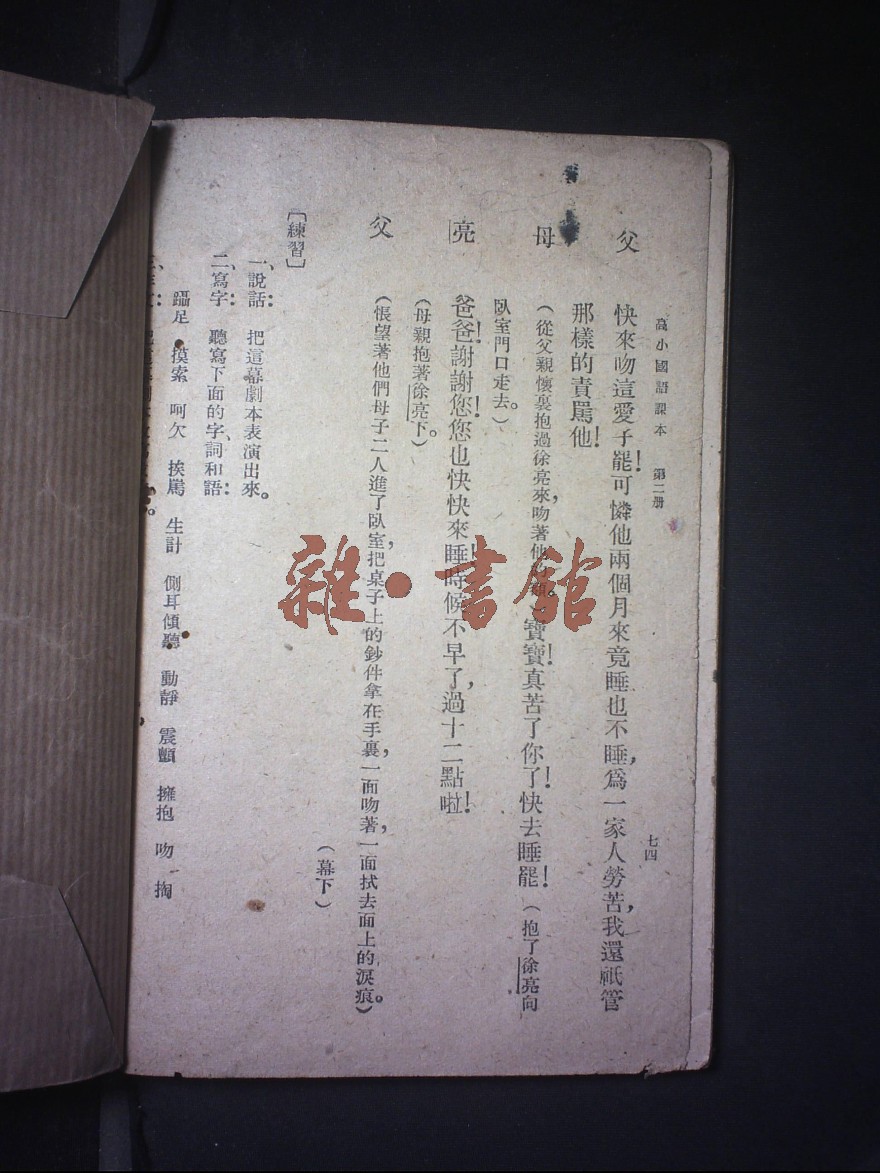 高小國語課本 第二册 七四
父 快來吻這愛子罷!可憐他兩個月來竟睡也不睡,爲一家人勞苦,我還祇管
那樣的責罵他!
母 (從父親懷裏抱過徐亮來,吻著他的。)寶寶!真苦了你了!快去睡罷!(抱了徐亮向
臥室門口走去。)
亮 爸爸!謝謝您!您也快快來睡!時候不早了,過十二點啦!
(母親抱著徐亮下。)
父 (悵望著他們母子二人進了臥室,把桌子上的鈔件拿在手裏,一面吻著,一面拭去面上的淚痕。)
(幕下)
[練習]
一、說話:把這幕劇本表演出來。
二、寫字:聽寫下面的字、詞和語:
躡足 摸索 呵欠 挨罵 生計 側耳傾聽 動靜 震顫 擁抱 吻 掏
雜·書館